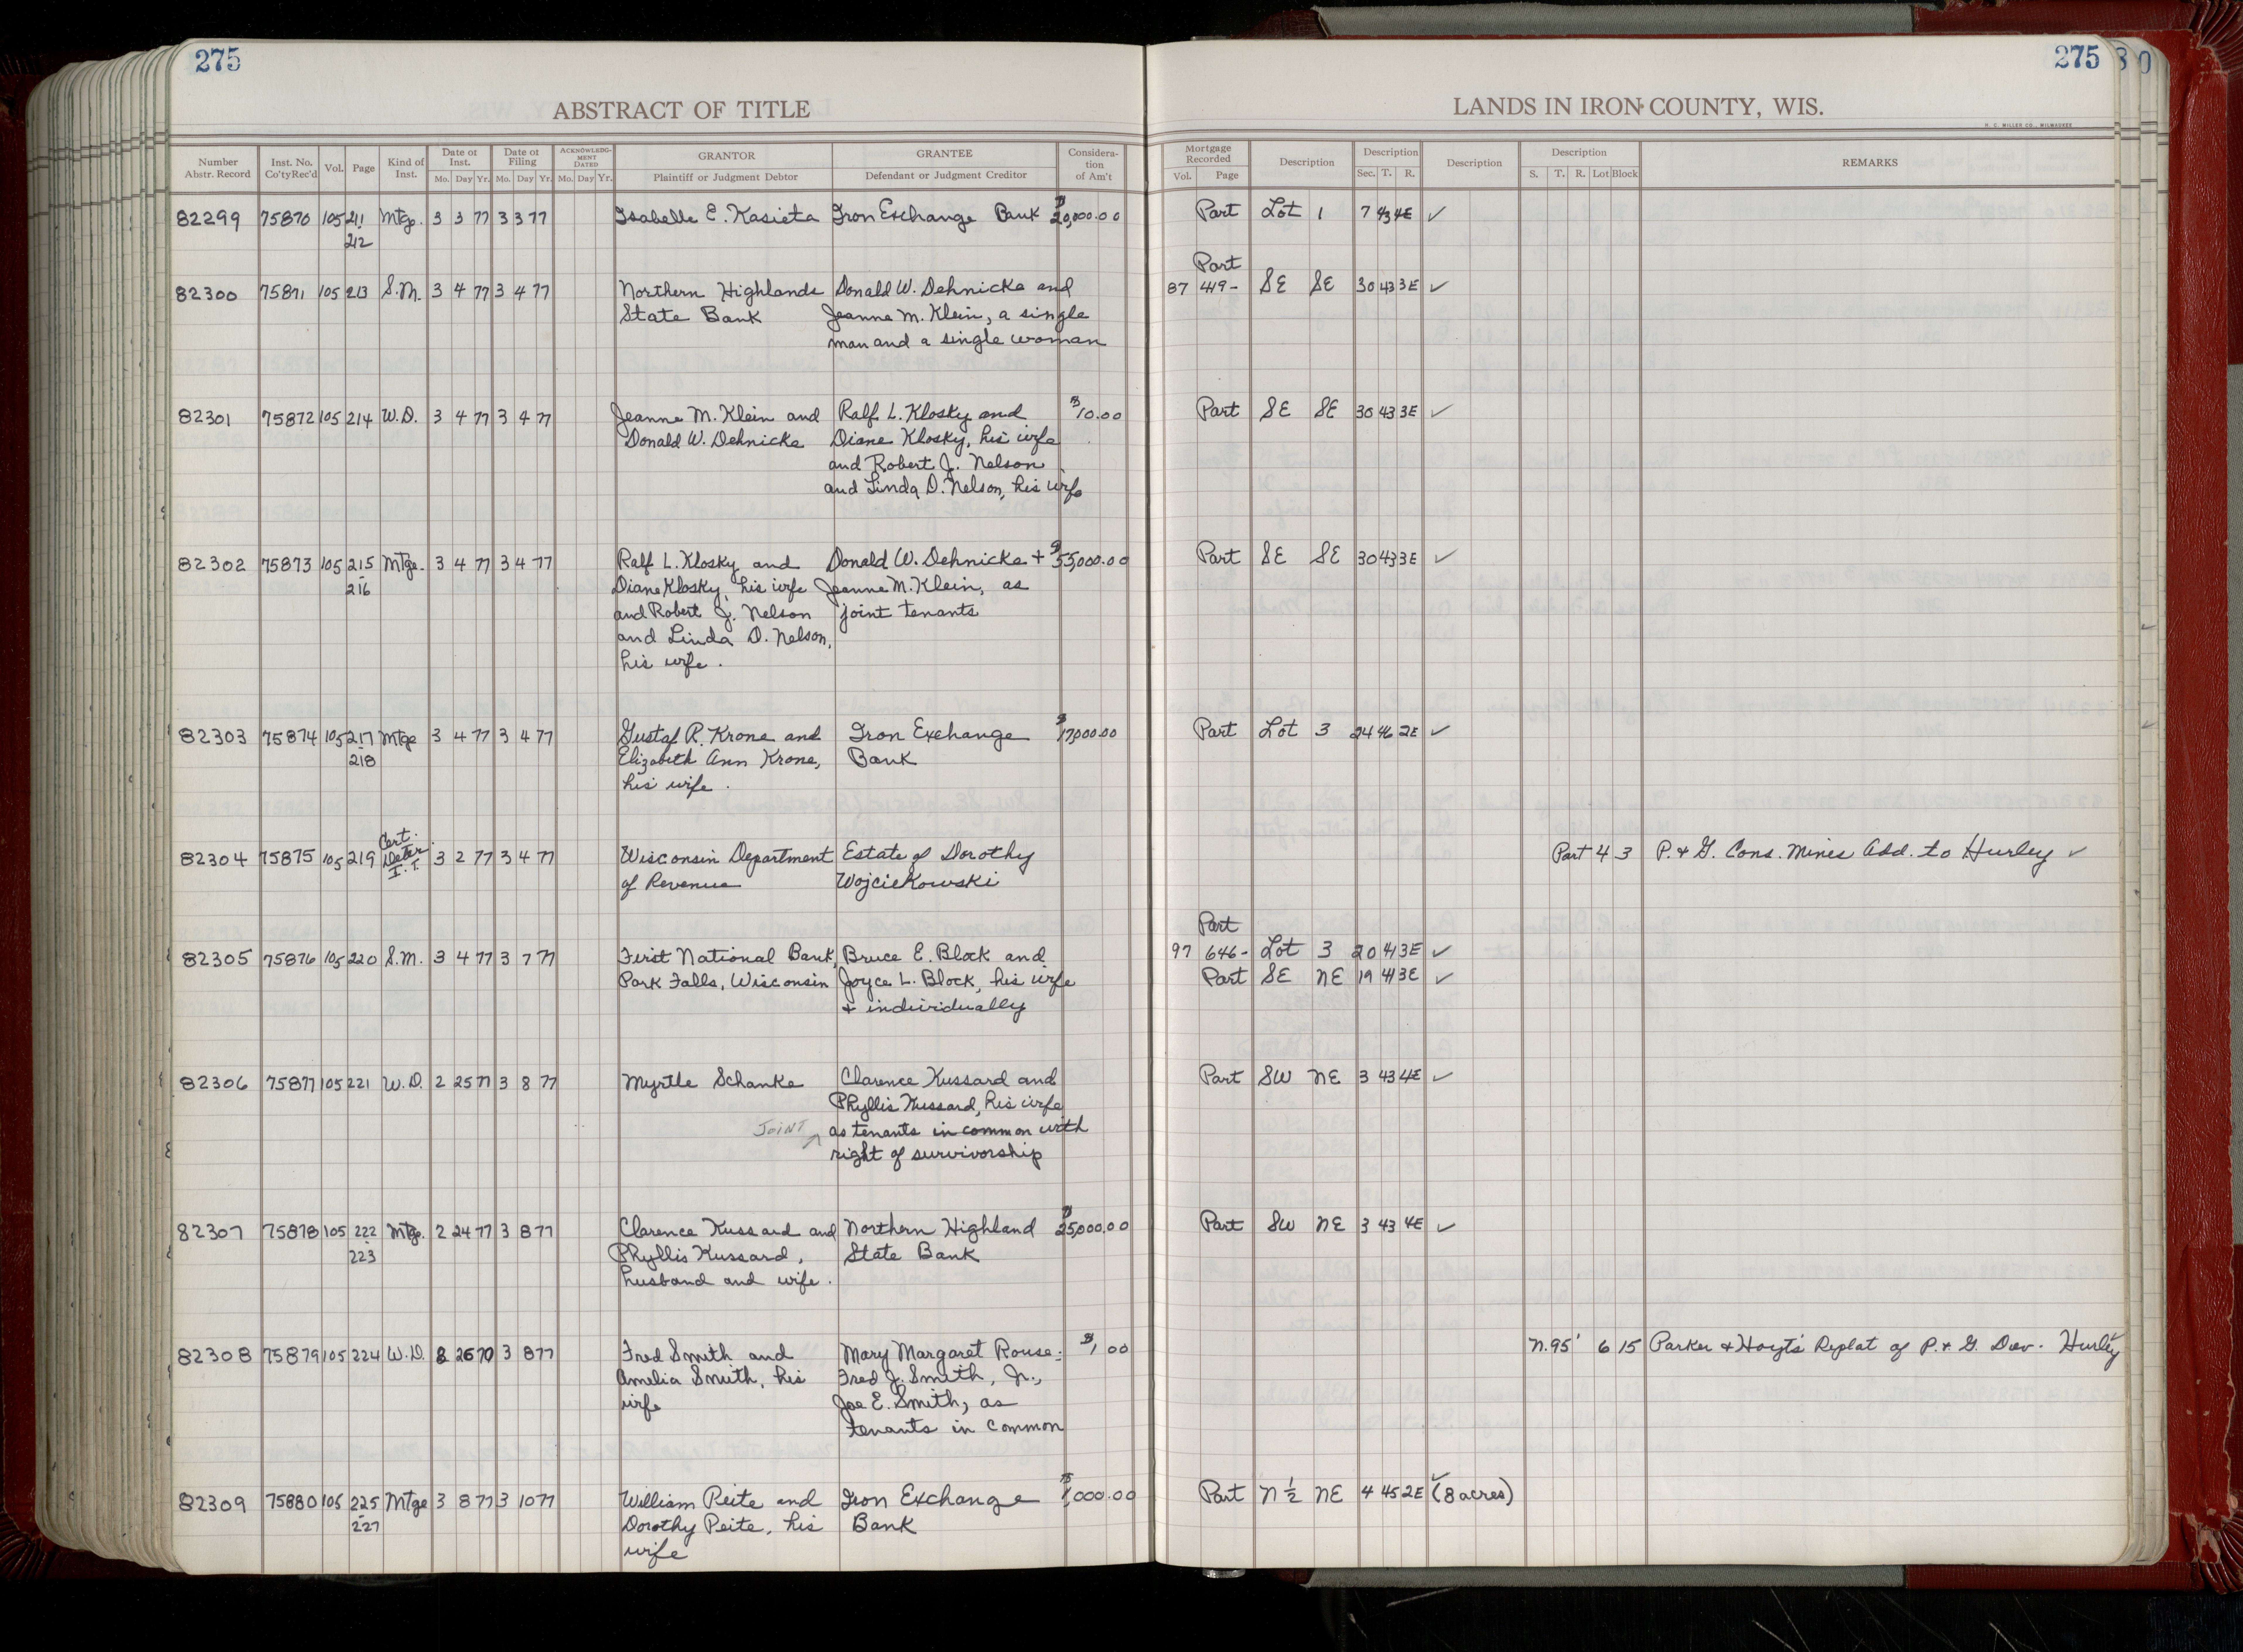 275
275
ABSTRACT OF TITLE
LANDS IN IRON COUNTY, WIS.
H. C. MILLER CO., MILWAUKEE
Number Abstr. Record Inst. No. Co'ty Rec'd Vol. Page Kind of Inst. Date of Inst. Mo. Day Yr. Date of Filing Mo. Day Yr. ACKNOWLEDGMENT DATED Mo. Day Yr. GRANTOR Plaintiff or Judgment Debtor GRANTEE Defendant or Judgment Creditor Consideration of Am't Mortgage Recorded Vol. Page Description Description Sec. T. R. Description Description S. T. R. Lot Block REMARKS
82299 75870 105 211 Mtge. 3 3 77 3 3 77 Isabelle E. Kasieta Iron Exchange Bank $20,000.00 Part Lot 1 7 43 4E ✓
212
Part
82300 75871 105 213 S.M. 3 4 77 3 4 77 Northern Highlands Donald W. Dehnicke and 87 419- SE SE 30 43 3E ✓
State Bank Jeanne M. Klein, a single
man and a single woman
82301 75872 105 214 W.D. 3 4 77 3 4 77 Jeanne M. Klein and Ralf L. Klosky and $10.00 Part SE SE 30 43 3E ✓
Donald W. Dehnicke Diane Klosky, his wife
and Robert J. Nelson
and Linda D. Nelson, his wife
82302 75873 105 215 Mtge. 3 4 77 3 4 77 Ralf L. Klosky and Donald W. Dehnicke + $55,000.00 Part SE SE 30 43 3E ✓
- 216 Diane Klosky, his wife Jeanne M. Klein, as
and Robert J. Nelson joint tenants
and Linda D. Nelson,
his wife.
82303 75874 105 217 Mtge 3 4 77 3 4 77 Gustaf R. Krone and Iron Exchange $17,000.00 Part Lot 3 24 46 2E ✓
- 218 Elizabeth Ann Krone, Bank
his wife.
82304 75875 105 219 Cert. Deter. I.T. 3 2 77 3 4 77 Wisconsin Department Estate of Dorothy Part 4 3 P. & G. Cons. Mines Add. to Hurley ✓
of Revenue Wojciekowski
Part
82305 75876 105 220 S.M. 3 4 77 3 7 77 First National Bank, Bruce E. Block and 97 646- Lot 3 20 41 3E ✓
Park Falls, Wisconsin Joyce L. Block, his wife Part SE NE 19 41 3E ✓
+ individually
82306 75877 105 221 W.D. 2 25 77 3 8 77 Myrtle Schanke Clarence Kussard and Part SW NE 3 43 4E ✓
Phyllis Kussard, his wife
JOINT as tenants in common with
right of survivorship
82307 75878 105 222 Mtge. 2 24 77 3 8 77 Clarence Kussard and Northern Highland $25,000.00 Part SW NE 3 43 4E ✓
- 223 Phyllis Kussard, State Bank
husband and wife.
82308 75879 105 224 W.D. 8 26 70 3 8 77 Fred Smith and Mary Margaret Rouse; $1.00 N.95' 6 15 Parker & Hoyt's Replat of P. & G. Dev. Hurley ✓
Amelia Smith, his Fred J. Smith, Jr.,
wife Joe E. Smith, as
tenants in common
82309 75880 105 225 Mtge 3 8 77 3 10 77 William Peite and Iron Exchange $1,000.00 Part N ½ NE 4 45 2E ✓ (8 acres)
- 227 Dorothy Peite, his Bank
wife